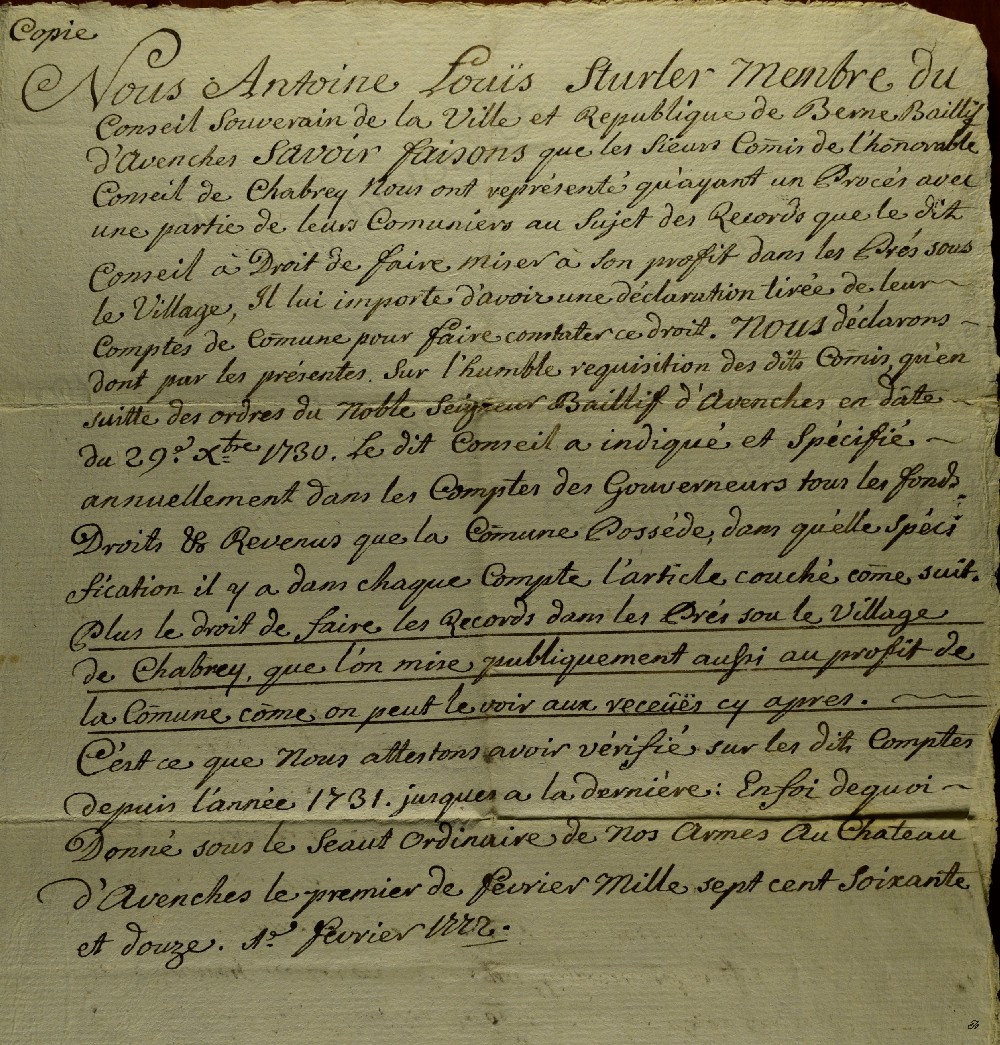 Copie
Nous Antoine Louïs Sturler Membre du
Conseil Souverain de la Ville et Republique de Berne Baillif
d'Avenches Savoir faisons que les Sieurs Com̄is de l'hon̄orable
Conseil de Chabrey Nous ont représenté qu'ayant un Procés avec
une partie de leurs Comuniers au Sujet des Records que le dit
Conseil à Droit de faire miser à son profit dans les Prés sous
le Village, Il lui importe d'avoir une déclaration tirée de leur
Comptes de Com̄une pour faire constater ce droit. Nous déclarons
dont par les présentes. Sur l'humble requisition des dits Comis, qu'en
suitte des ordres du Noble Seigneur Baillif d'Avenches en dâte
du 29.e Xbre 1730. Le dit Conseil a indiqué et Spécifié
annuellement dans les Comptes des Gouverneurs tous les fonds
Droits & Revenus que la Com̄une Posséde, dans qu'elle Spéci
fication il y a dans chaque Compte l'article couché com̄e suit.
Plus le droit de faire les Records dans les Prés sou le Village
de Chabrey, que l'on mise publiquement aussi au profit de
la Com̄une com̄e on peut le voir aux receüës cy apres.
C'est ce que Nous attestons avoir vérifié sur les dits Comptes
depuis l'année 1731. jusques a la derniére: En foi dequoi
Donné sous le Seaut Ordinaire de Nos Armes Au Chateau
d'Avenches le premier de février Mille sept cent Soixante
et douze. 1.r février 1772.